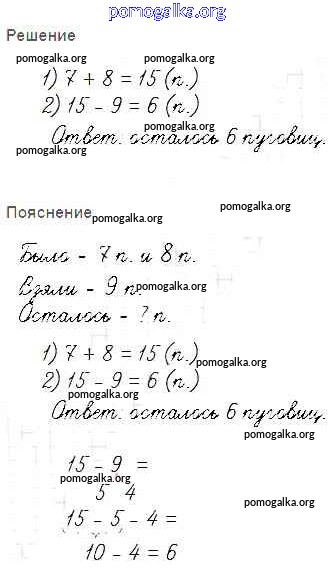 pomogalka.org
Решение
pomogalka.org pomogalka.org
1) 7 + 8 = 15 (п.)
pomogalka.org pomogalka.org
2) 15 - 9 = 6 (п.)
pomogalka.org
Ответ: осталось 6 пуговиц.
pomogalka.org
pomogalka.org
Пояснение
pomogalka.org
Было - 7 п. и 8 п.
Взяли - 9 п.
pomogalka.org
Осталось - ? п.
1) 7 + 8 = 15 (п.)
pomogalka.org
2) 15 - 9 = 6 (п.)
pomogalka.org
Ответ: осталось 6 пуговиц.
pomogalka.org
15 - 9 =
pomogalka.org
5 4
pomogalka.org
15 - 5 - 4 =
10 - 4 = 6